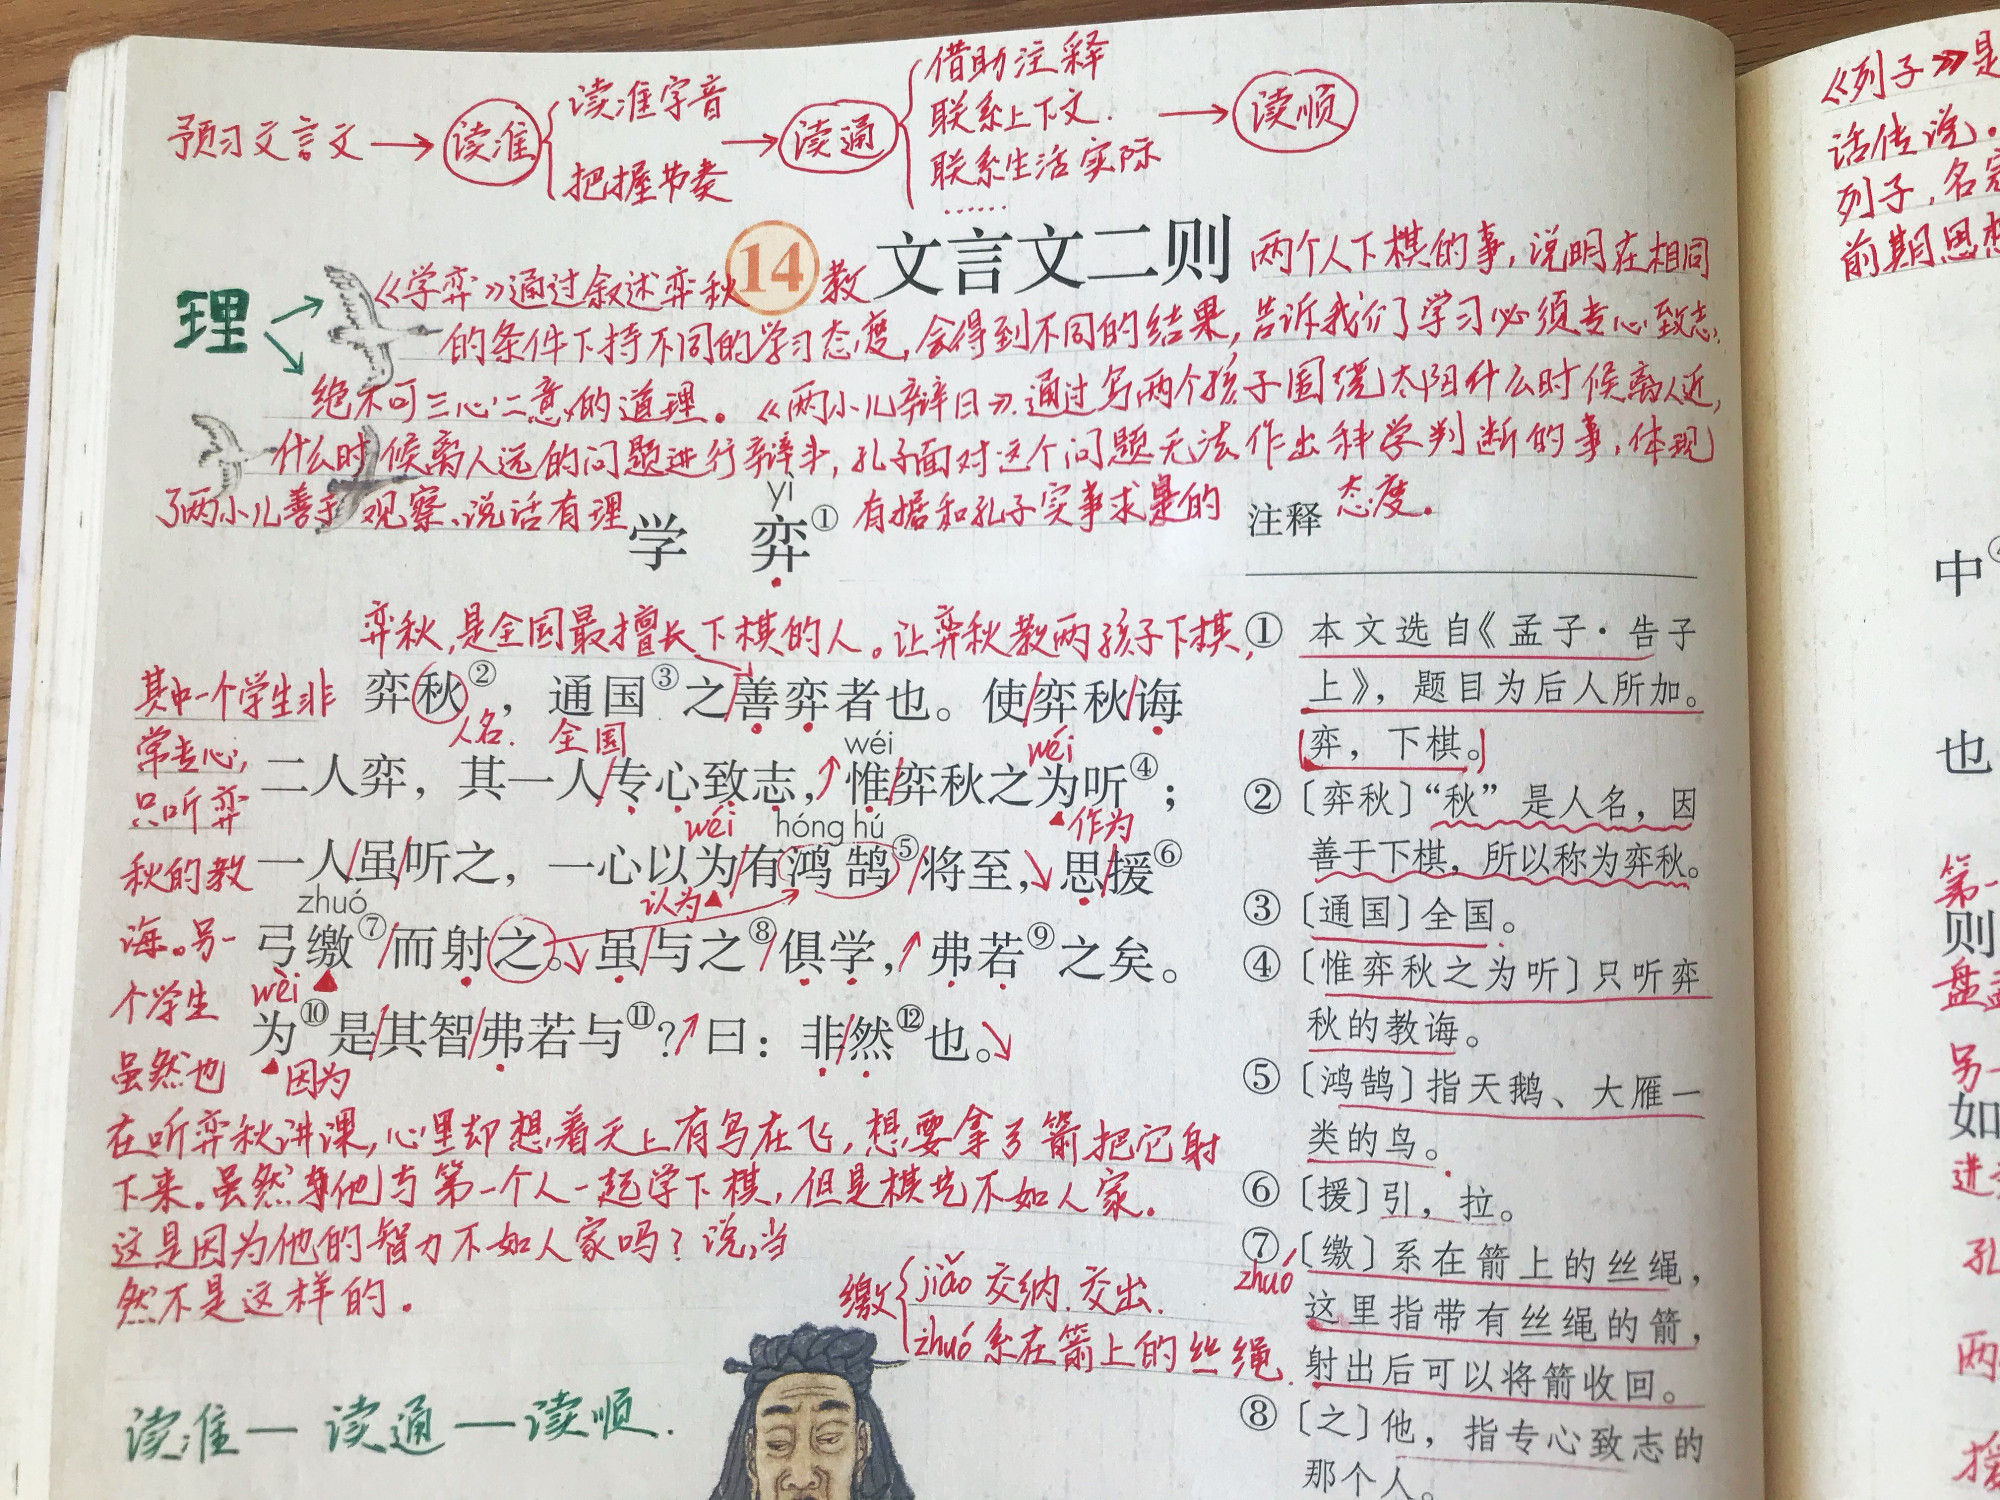 预习文言文→读准{读准字音 把握节奏→读通{借助注释 联系上下文. 联系生活实际 ……→读顺
14 文言文二则
理
《学弈》通过叙述弈秋教两个人下棋的事,说明在相同
的条件下持不同的学习态度,会得到不同的结果,告诉我们了学习必须专心致志,
绝不可三心二意的道理。《两小儿辩日》通过写两个孩子围绕太阳什么时候离人近,
什么时候离人远的问题进行辩斗,孔子面对这个问题无法作出科学判断的事,体现
了两小儿善于观察、说话有理有据和孔子实事求是的态度。
yì
学 弈①
弈秋,是全国最擅长下棋的人。让弈秋教两孩子下棋,
弈秋②,通国③之/善弈者也。使/弈秋/诲
人名. 全国
wéi wéi
二人弈,其一人/专心致志,↗惟/弈秋之为听④;
wéi hóng hú 作为
一人/虽/听之,一心以为/有鸿鹄⑤/将至,↘思/援⑥
zhuó 认为
弓缴⑦/而射之。↘虽/与之⑧/俱学,↗弗若⑨之矣。
wèi
为⑩是/其智/弗若与⑪?↗曰:非/然⑫也。↘
因为
其中一个学生非
常专心,
只听弈
秋的教
诲。另一
个学生
虽然也
在听弈秋讲课,心里却想着天上有鸟在飞,想要拿弓箭把它射
下来。虽然他与第一个人一起学下棋,但是棋艺不如人家.
这是因为他的智力不如人家吗?说,当
然不是这样的.
缴{jiǎo 交纳.交出.
zhuó 系在箭上的丝绳.
读准—读通—读顺.
注释
① 本文选自《孟子·告子
上》,题目为后人所加。
弈,下棋。
② 〔弈秋〕“秋”是人名,因
善于下棋,所以称为弈秋。
③ 〔通国〕全国。
④ 〔惟弈秋之为听〕只听弈
秋的教诲。
⑤ 〔鸿鹄〕指天鹅、大雁一
类的鸟。
⑥ 〔援〕引,拉。
⑦ 〔缴〕系在箭上的丝绳,
zhuó
这里指带有丝绳的箭,
射出后可以将箭收回。
⑧ 〔之〕他,指专心致志的
那个人。
《列子》是
话传说.
列子,名
前期思想
中
也
第一
则
盘
另一
如
进
孔
两
援